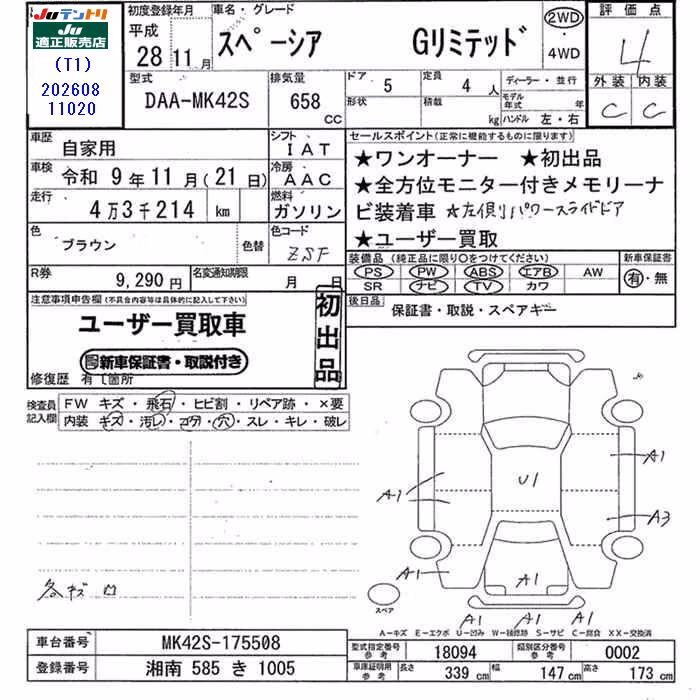 Juテントリ
Ju
適正販売店
(T1)
202608
11020
初度登録年月
平成
28 11月
車名・グレード
スペーシア Gリミテッド
2WD
・
4WD
評価点
4
外装 内装
C C
型式
DAA-MK42S
排気量
658
CC
ドア 5
形状
定員 4 人
積載 kg
ディーラー・並行
モデル年式 年
ハンドル 左・右
車歴 自家用
シフト IAT
車検 令和 9年 11月(21日)
冷房 AAC
走行 4万3千214 km
燃料 ガソリン
色 ブラウン 色替
色コード ZSF
R券 9,290円
名変通知期限 月 日
セールスポイント(正常に機能するものに限ります)
★ワンオーナー ★初出品
★全方位モニター付きメモリーナ
ビ装着車 ★左側リパワースライドドア
★ユーザー買取
装備品(純正品に限り○をつけてください)
PS PW ABS エアB AW
SR ナビ TV カワ
新車保証書
有・無
後日品 保証書・取説・スペアキー
注意事項申告欄(不具合内容等は具体的に記入して下さい)
ユーザー買取車
新車保証書・取説付き
初出品
修復歴 有〔箇所
検査員
記入欄
FW キズ・飛石・ヒビ割・リペア跡・×要
内装 キズ・汚レ・コゲ・穴・スレ・キレ・破レ
各キズ凹
A1
U1
A1
A3
A1
A1
スペア
A1 A1 A1
A-キズ E-エクボ U-凹み W-補修跡 S-サビ C-腐食 XX-交換済
車台番号 MK42S-175508
登録番号 湘南 585 き 1005
型式指定番号 参考 18094
類別区分番号 参考 0002
車庫証明用 参考 長さ 339 cm 幅 147 cm 高さ 173 cm